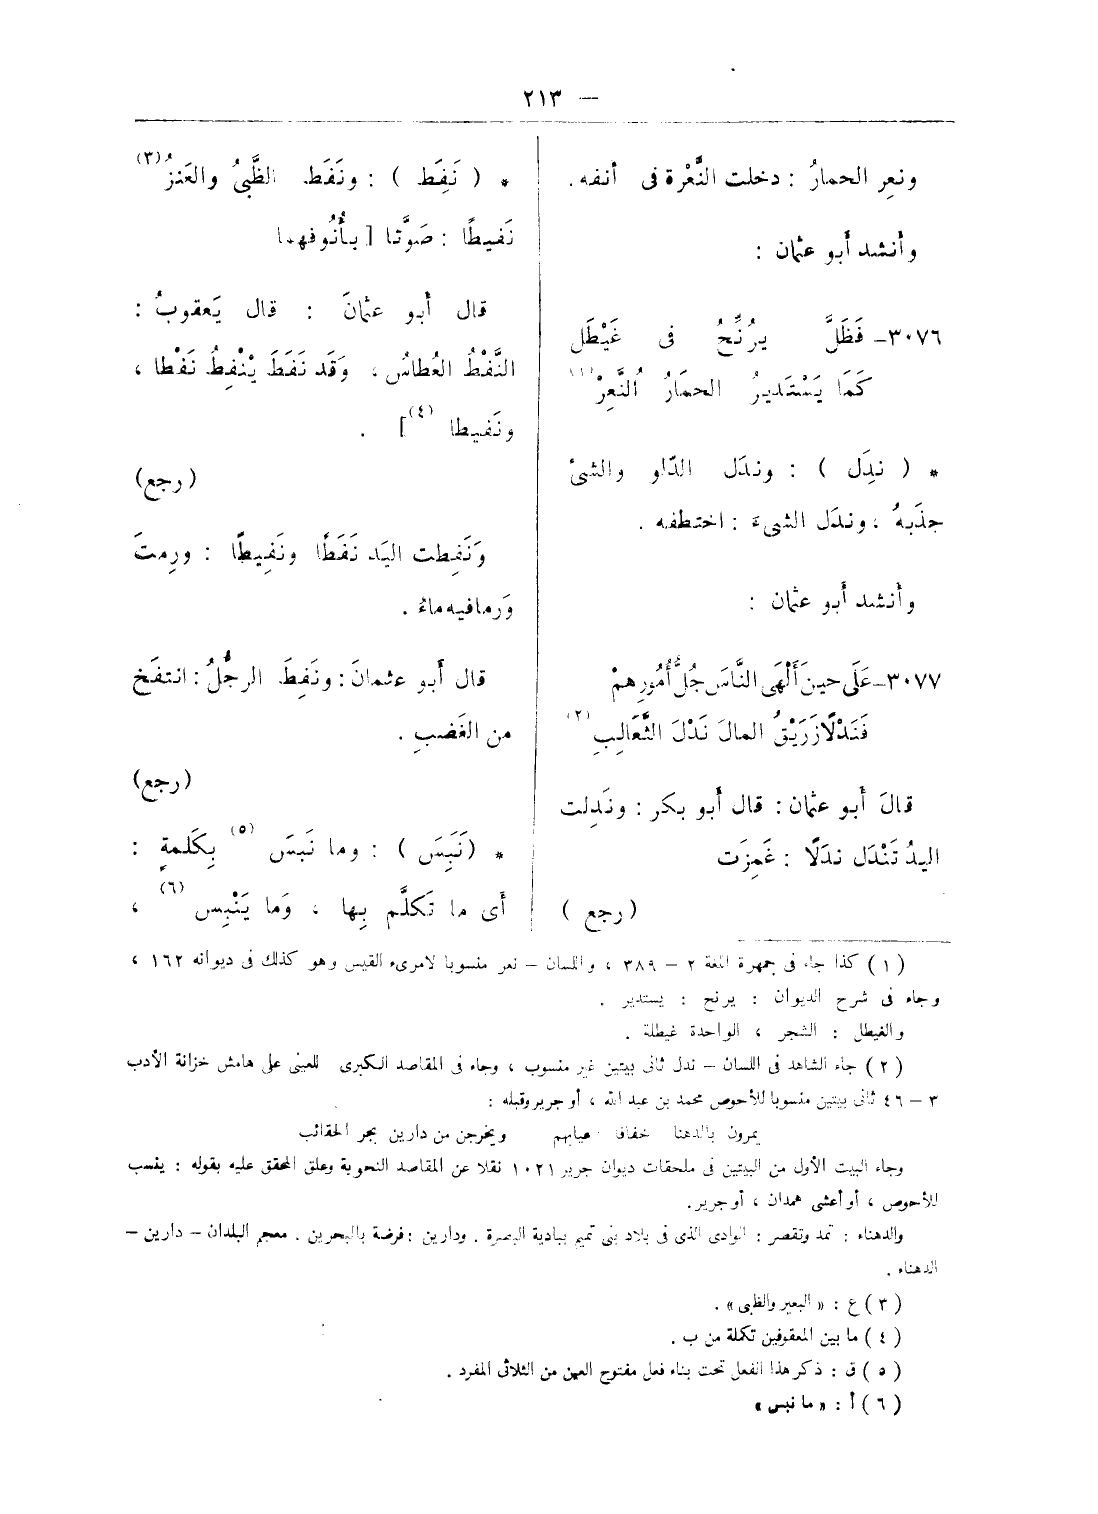 — ٢١٣
ونعِر الحمارُ : دخلت النُّعْرة فى أنفه .
وأنشد أبو عثمان :
٣٠٧٦ – فَظَلَّ يرُنِّحُ فى غَيْطَل
كَمَا يَسْتَديرُ الحمَارُ النَّعِرْ (١)
* ( ندِل ) : وندَل الدّلو والشئ
جذَبهُ ، وندَل الشىءَ : اختطفه .
وأنشد أبو عثمان :
٣٠٧٧ – عَلَى حينَ أَلْهَى النَّاسَ جُلُّ أُمُورِهمْ
فَنَدْلًا زَرَيْقُ المالَ نَدْلَ الثَّعَالِبِ (٢)
قالَ أَبو عثمان : قال أَبو بكر : ونَدِلت
اليدُ تَنْدَل ندَلًا : غَمِزَت
( رجع )
* ( نَفِطَ ) : ونَفَط الظَّبىُ والعَنزُ (٣)
نَفيطًا : صَوَّتا [ بأُنُوفهما
قال أَبو عثمانَ : قال يَعقوبُ :
النَّفْطُ العُطاسُ ، وَقَد نَفَطَ يْنْفِطُ نَفْطا ،
ونَفيطا (٤) ] .
(رجع)
وَنَفِطت اليَد نَفَطًا ونَفِيطًا : ورِمتَ
وَرما فيه ماءُ .
قال أَبو عثمانَ : ونَفِطَ الرجُلُ : انتفَخ
من الغَضبِ .
(رجع)
* (نَبَِسَ ) : وما نَبسَ (٥) بِكَلمةٍ :
أى ما تَكلَّم بِها ، وَما يَنْبِس (٦) ،
( ١ ) كذا جاء فى جمهرة اللغة ٢ – ٣٨٩ ، واللسان – نعر منسوبا لامرىء القيس وهو كذلك فى ديوانه ١٦٢ ،
وجاء فى شرح الديوان : يرنح : يستدير .
والغيطل : الشجر ، الواحدة غيطلة .
( ٢ ) جاء الشاهد فى اللسان – ندل ثانى بيتين غير منسوب ، وجاء فى المقاصد الكبرى للعينى على هامش خزانة الأدب
٣ – ٤٦ ثانى بيتين منسوبا للأحوص محمد بن عبد الله ، أو جرير وقبله :
يمرون بالدهنا خفافا عيابهم ويخرجن من دارين بجر الحقائب
وجاء البيت الأول من البيتين فى ملحقات ديوان جرير ١٠٢١ نقلا عن المقاصد النحوية وعلق المحقق عليه بقوله : ينسب
للأحوص ، أو أعشى همدان ، أو جرير.
والدهناء : تمد وتقصر : الوادى الذى فى بلاد بنى تميم ببادية البصرة . ودارين : فرضة بالبحرين . معجم البلدان – دارين –
الدهناء .
( ٣ ) ع : « البعير والظبى » .
( ٤ ) ما بين المعقوفين تكملة من ب .
( ٥ ) ق : ذكر هذا الفعل تحت بناء فعل مفتوح العين من الثلاثى المفرد .
( ٦ ) أ : « ما نبس »